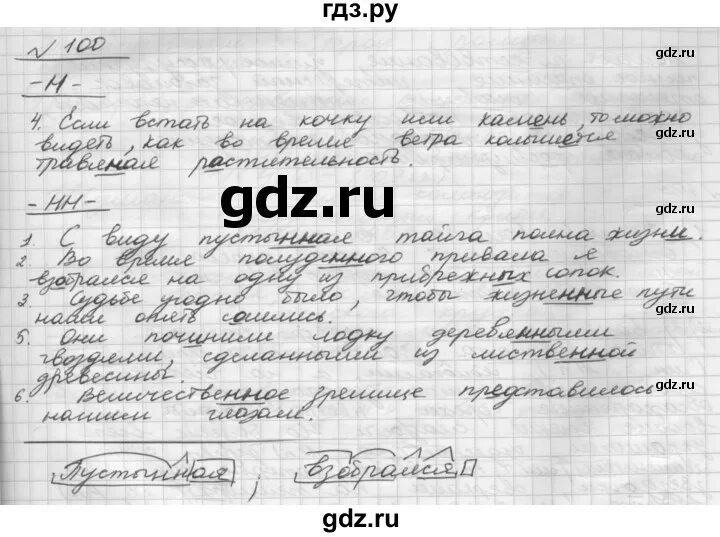 гдз.ру
√ 100
- Н -
4. Если встать на кочку или камень, то можно
видеть, как во время ветра колышется
травяная растительность.
- НН -
1. С виду пустынная тайга полна жизни.
2. Во время полуденного привала я
взобрался на одну из прибрежных сопок.
3. Судьбе угодно было, чтобы жизненные пути
наши опять сошлись.
5. Они починили лодку деревянными
гвоздями, сделанными из лиственной
древесины.
6. Величественное зрелище представилось
нашим глазам.
Пустынная ; взобрался
gdz.ru
gdz.ru
gdz.ru
gdz.ru
gdz.ru
gdz.ru
gdz.ru
gdz.ru